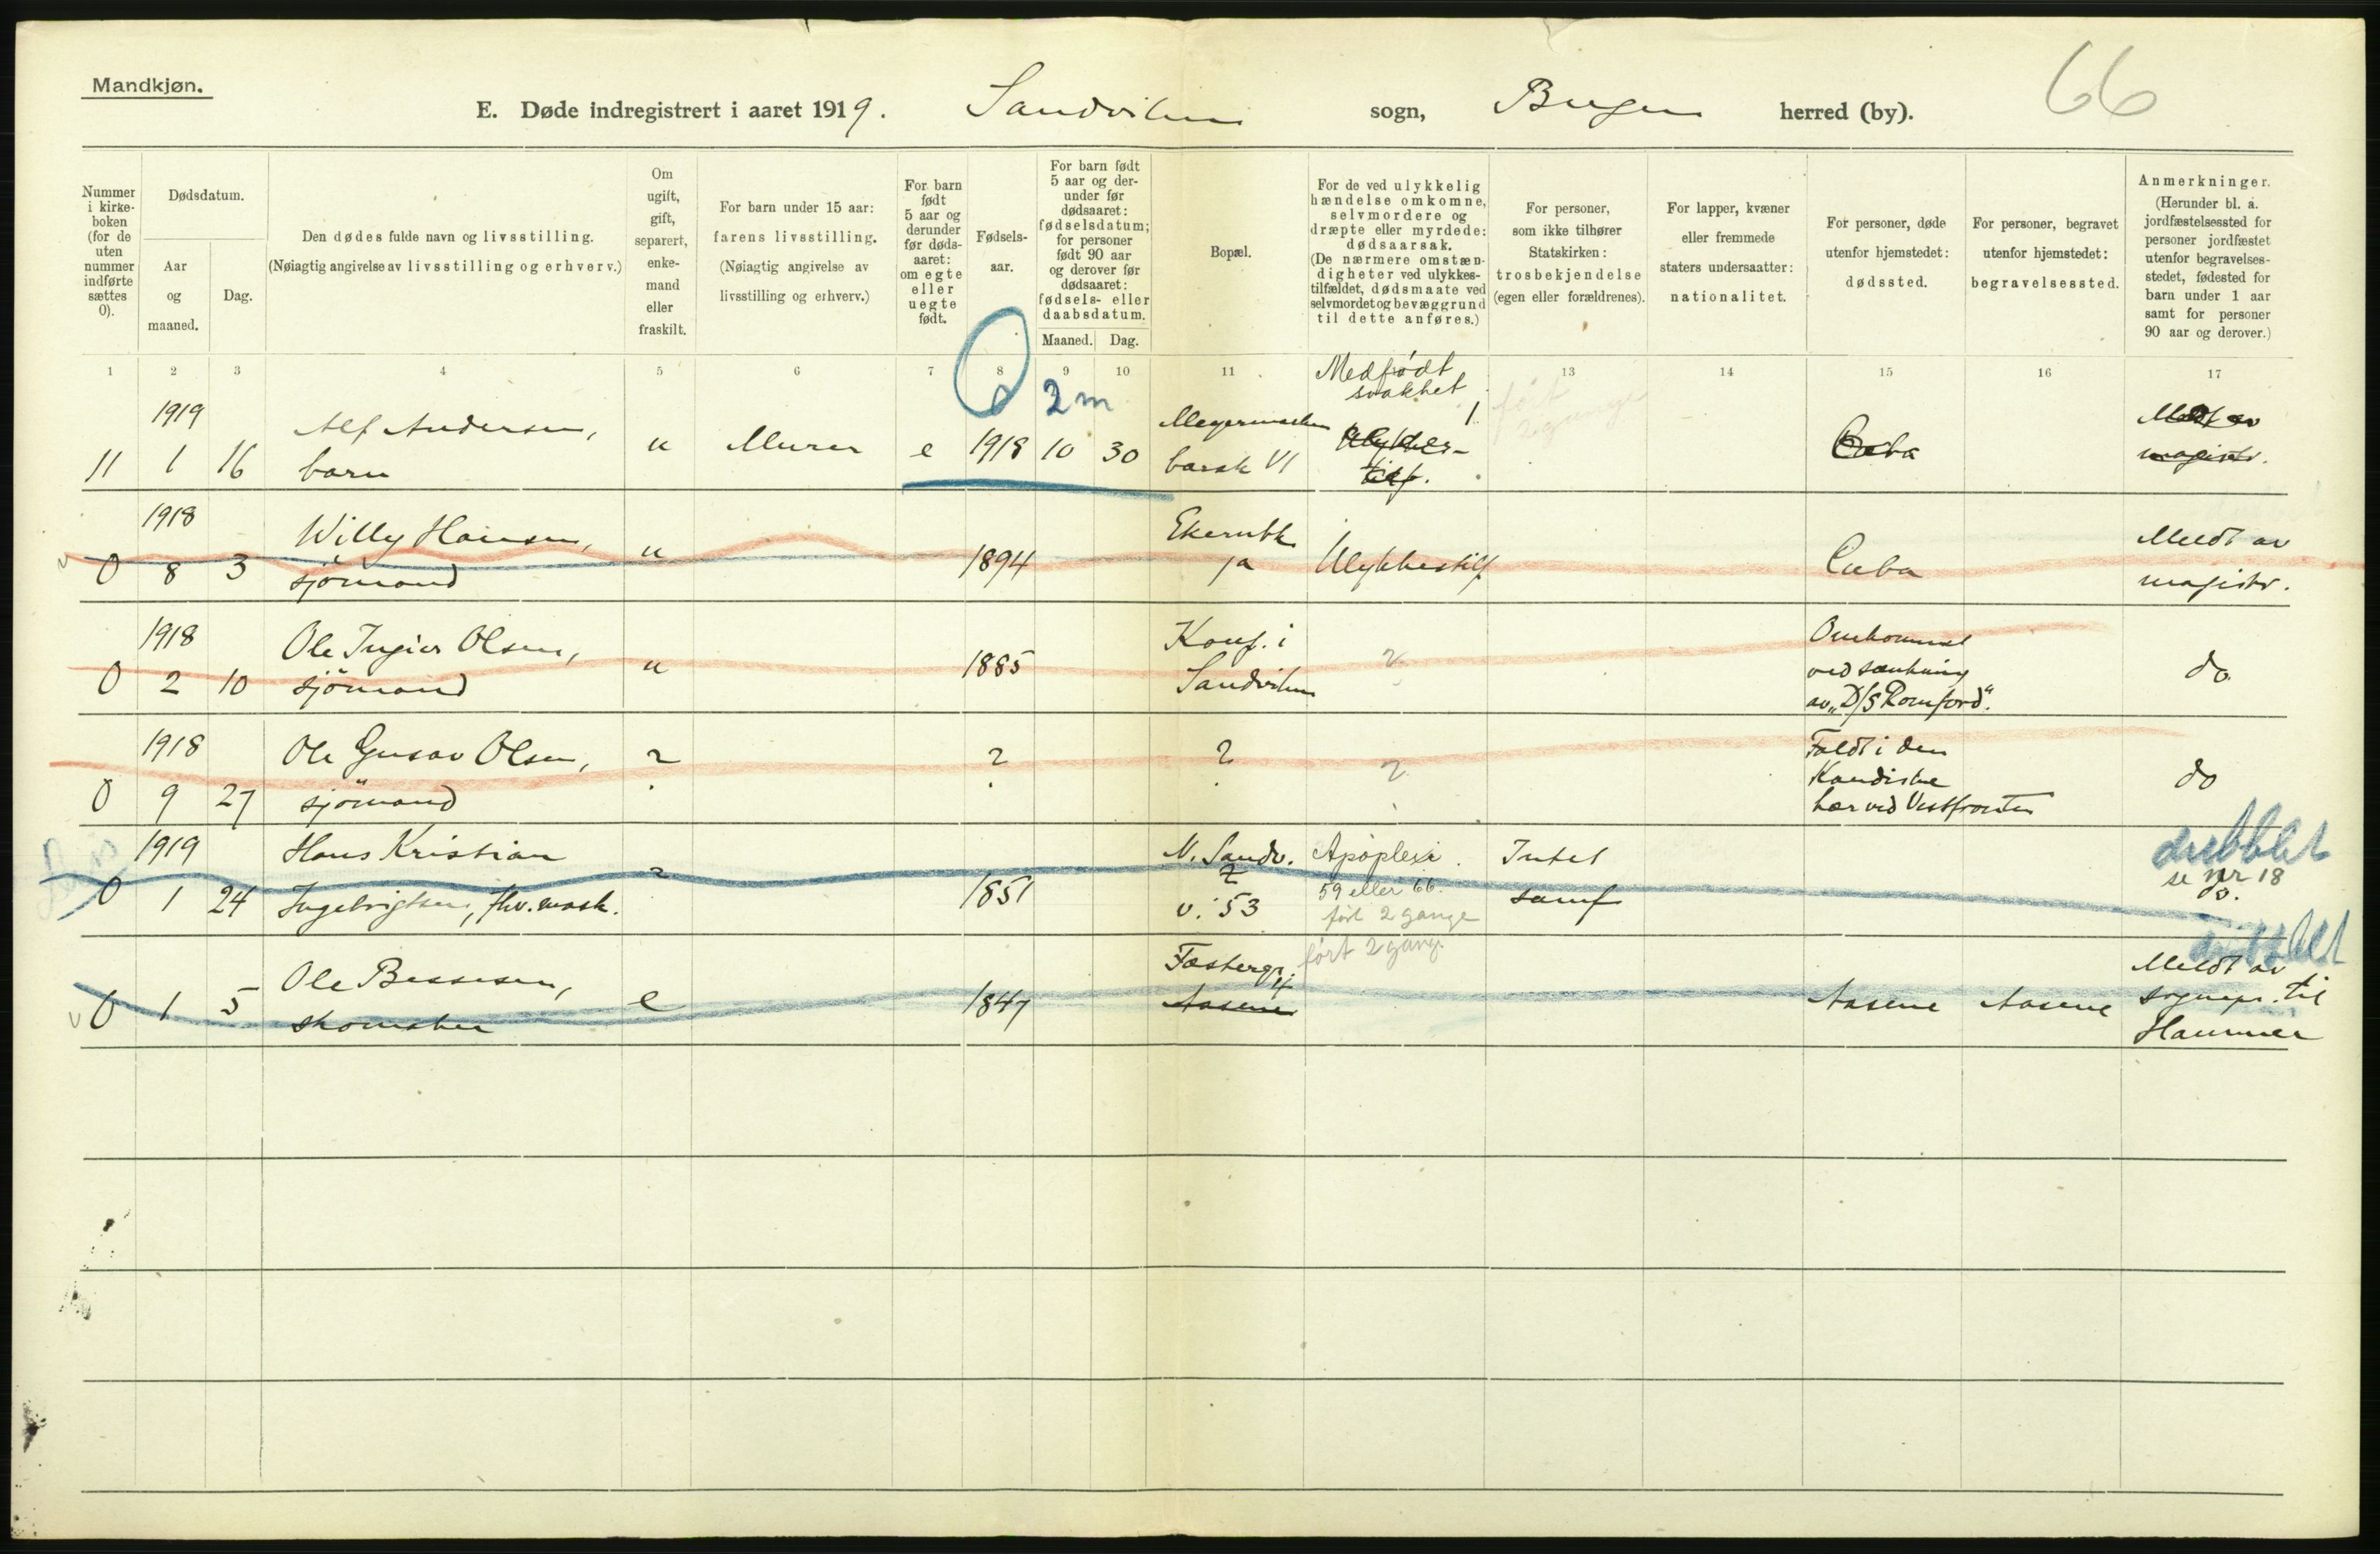 Mandkjøn.
E. Døde indregistrert i aaret 1919. Sandviken sogn, Bergen herred (by).
66
Nummer i kirke-boken (for de uten nummer indførte sættes 0).
Dødsdatum.
Aar og maaned.
Dag.
Den dødes fulde navn og livsstilling.
(Nøiagtig angivelse av livsstilling og erhverv.)
Om ugift, gift, separert, enke-mand eller fraskilt.
For barn under 15 aar:
farens livsstilling.
(Nøiagtig angivelse av livsstilling og erhverv.)
For barn født 5 aar og derunder før døds-aaret: om egte eller uegte født.
Fødsels-aar.
For barn født 5 aar og der-under før dødsaaret: fødselsdatum; for personer født 90 aar og derover før dødsaaret: fødsels- eller daabsdatum.
Maaned.
Dag.
Bopæl.
For de ved ulykkelig hændelse omkomne, selvmordere og dræpte eller myrdede: dødsaarsak.
(De nærmere omstæn-digheter ved ulykkes-tilfældet, dødsmaate ved selvmordet og bevæggrund til dette anføres.)
For personer, som ikke tilhører Statskirken: trosbekjendelse (egen eller forældrenes).
For lapper, kvæner eller fremmede staters undersaatter: nationalitet.
For personer, døde utenfor hjemstedet: dødssted.
For personer, begravet utenfor hjemstedet: begravelsessted.
Anmerkninger.
(Herunder bl. a. jordfæstelsessted for personer jordfæstet utenfor begravelses-stedet, fødested for barn under 1 aar samt for personer 90 aar og derover.)
1 2 3 4 5 6 7 8 9 10 11 13 14 15 16 17
Medfødt
svakhet
2 m
ført
2 gange
1919 Alf Andersen,
11 1 16 barn u Murer e 1918 10 30 barak VI
Ulykkes-
tilf.
Cuba
Meldt av
magistr.
1918 Willy Hansen, Ekernbk
0 8 3 sjömand u 1894 1a Ulykkestilf Cuba
Meldt av
magistr.
1918 Ole Ingier Olsen, Konf. i
0 2 10 sjömand u 1885 Sandviken ?
Omkommet
ved sænkning
av "D/S Romford".
do
1918 Ole Gusav Olsen, ? ? ? ?
0 9 27 sjömand
Faldt i den
Kandiske
hær ved Vestfronten
do
1919 Hans Kristian N. Sandv. Apoplexi. Intet
0 1 24 Ingebrigtsen, fhv. mask. ? 1851 v. 53 samf
59 eller 66.
ført 2 gange
dubblet
se nr 18
do.
ført 2 gange
dubblet
Ole Bessesen,
0 1 5 skomaker e 1847 Aasene Aasene Aasene
Meldt av
sognepr. til
Hammer